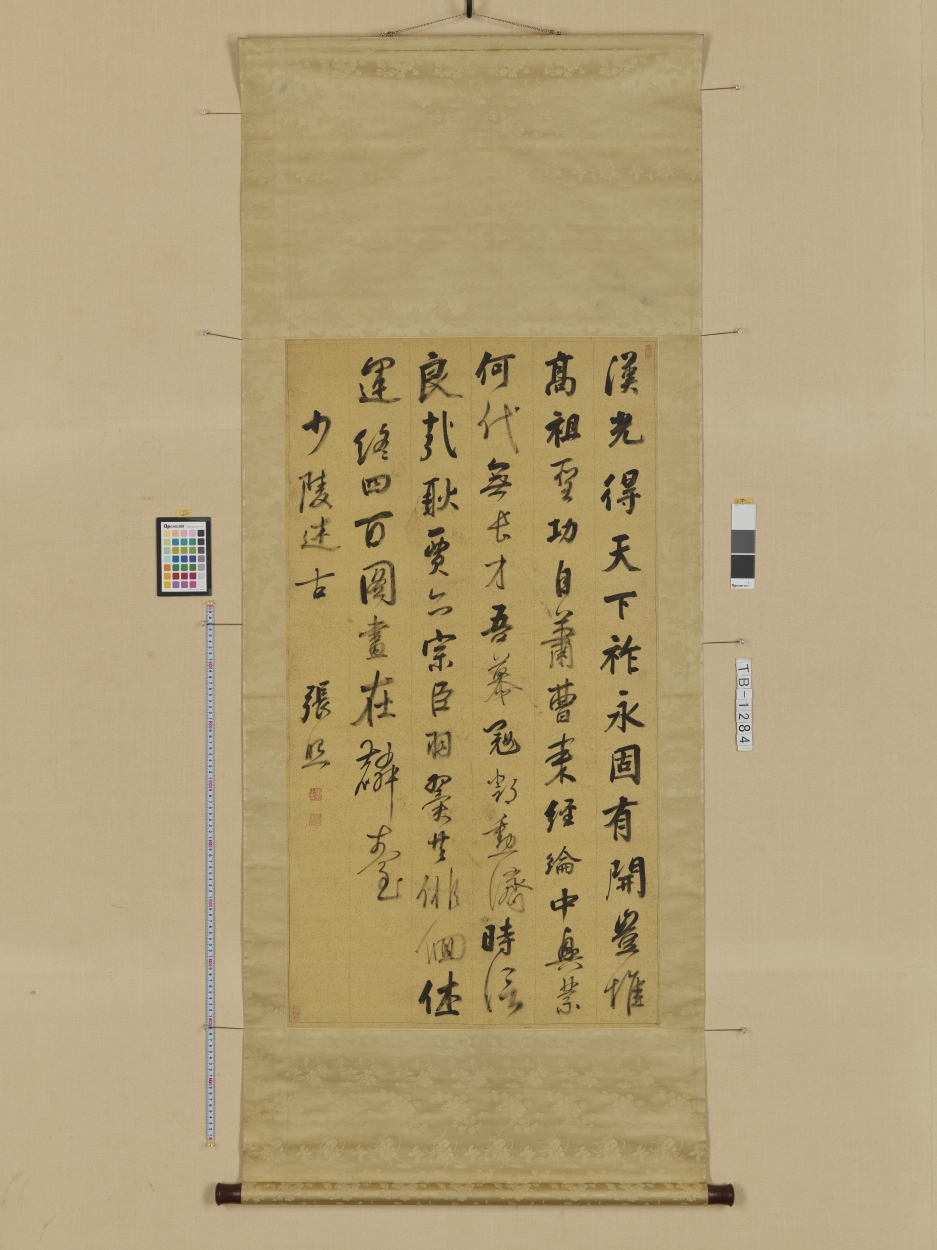 漢光得天下祚永固有開豈惟
髙祖聖功自蕭曹来經綸中興業
何代無長才吾慕冦鄧勳濟時信
良哉耿賈亦宗臣羽翼共俳佪休
運終四百圖畫在麟臺
少陵述古
張照
TB-1284